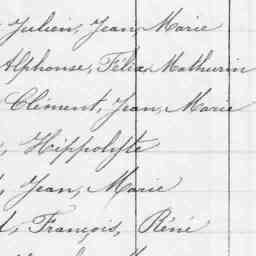 Julien, Jean, Marie
Alphonse, Félix, Mathurin
Clément, Jean, Marie
Hippolyte
Jean, Marie
François, Réné